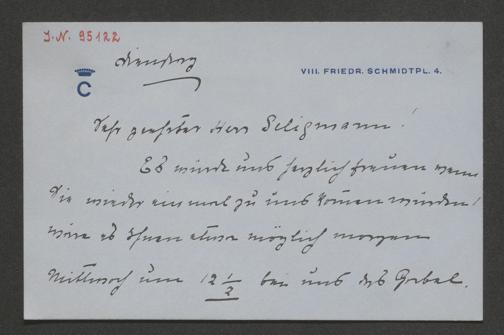 I.N. 95122
Dienstag
VIII. FRIEDR. SCHMIDTPL. 4.
C
Sehr geehrter Herr Seligmann!
Es würde uns herzlich freuen wenn
Sie wieder einmal zu uns kommen würden!
wäre es Ihnen etwa möglich morgen
Mittwoch um 12 ½ bei uns das